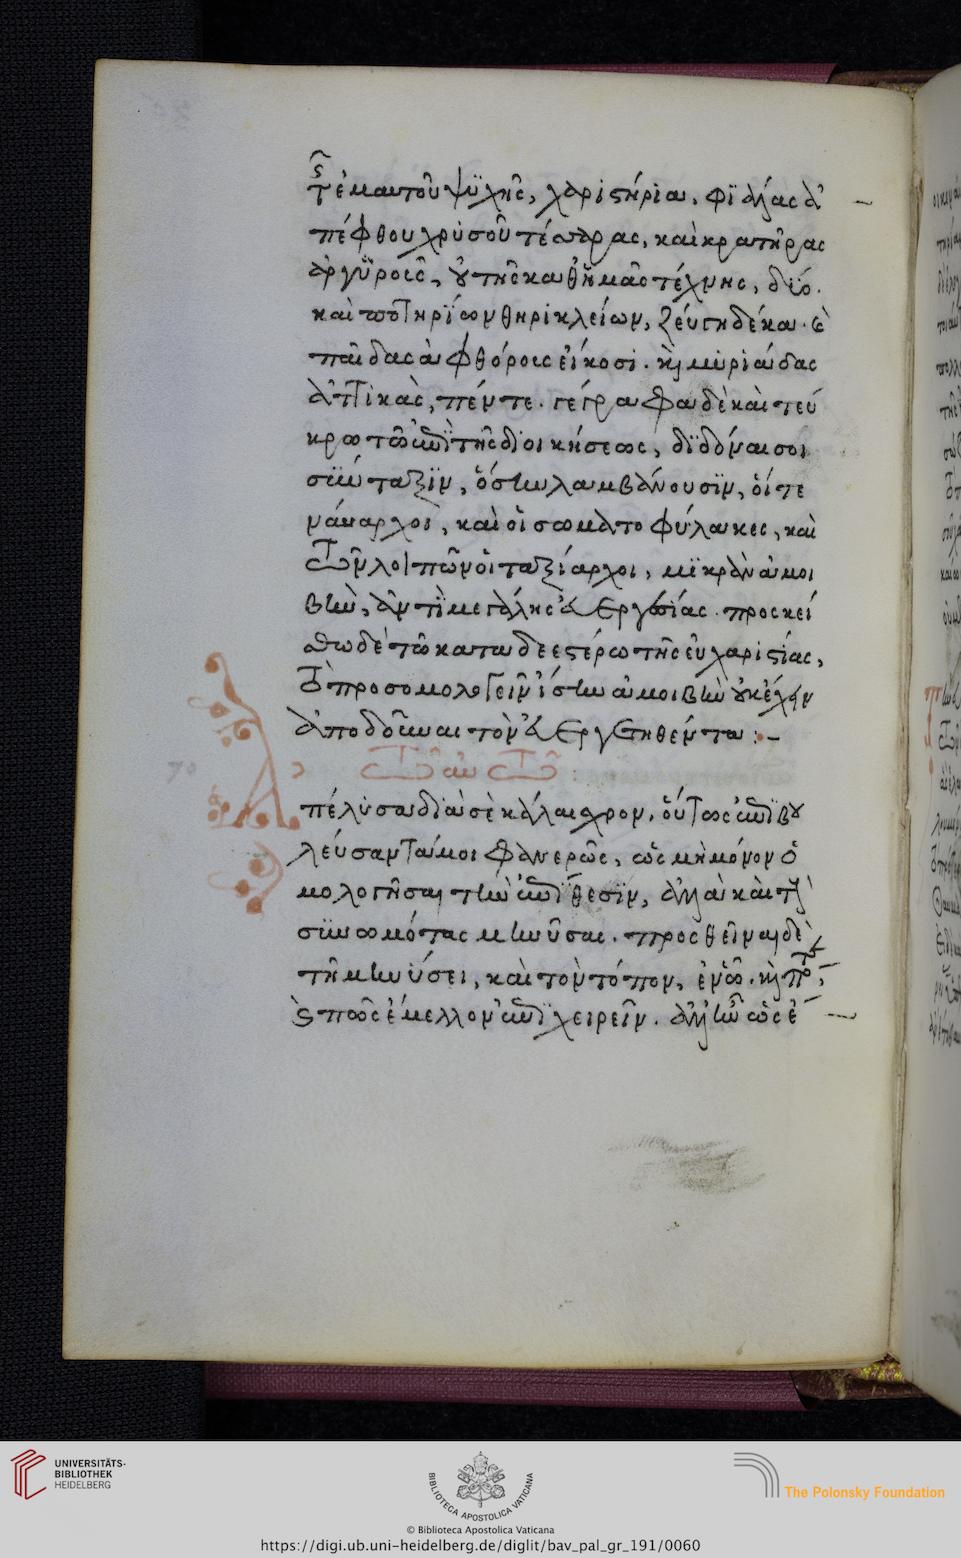 τῆς ἐμαυτοῦ ψυχῆς, χαριστήρια, φιάλας ἀ
πέφθου χρυσοῦ τέσσαρας, καὶ κρατῆρας
ἀργυροῦς, τῆς καθ' ἡμᾶς τέχνης, δύο.
καὶ ποτηρίων θηρικλείων, ζεύγη δέκα. καὶ
παῖδας ἀφθόρους εἴκοσι. καὶ μυριάδας
ἀττικὰς, πέντε. γέγραφα δὲ καὶ τεύ
κρω τῶ ἐπὶ τῆς διοικήσεως, διδόναι σοι
σύνταξιν, ὅσην λαμβάνουσιν, οἵ τε
ναύαρχοι, καὶ οἱ σωματοφύλακες, καὶ
τῶν λοιπῶν οἱ ταξίαρχοι, μικρὰν ἀμοι
βὴν, ἀντὶ μεγάλης εὐεργεσίας. προσκεί
σθω δὲ τῶ καταδεεστέρω τῆς εὐχαριστίας,
τὸ προσομολογεῖν ἴσην ἀμοιβὴν οὐκ ἔχειν
ἀποδοῦναι τὸν εὐεργετηθέντα :–
Τοῦ αὐτοῦ :
Ἀπέλυσα διὰ σὲ κάλαισχρον. οὕτως ἐπιβου
λεύσαντά μοι φανερῶς, ὡς μὴ μόνον ὁ
μολογῆσαι τὴν ἐπίθεσιν, ἀλλὰ καὶ τοὺς
συνωμότας μηνῦσαι. προσθεῖναι δὲ
τῆ μηνύσει, καὶ τὸν τόπον, ἐν ᾧ. καὶ πότε,
καὶ πῶς ἔμελλον ἐπιχειρεῖν. ἀλλ' ἦν ὡς ἐ
70
UNIVERSITÄTS-
BIBLIOTHEK
HEIDELBERG
BIBLIOTECA APOSTOLICA VATICANA
The Polonsky Foundation
© Biblioteca Apostolica Vaticana
https://digi.ub.uni-heidelberg.de/diglit/bav_pal_gr_191/0060